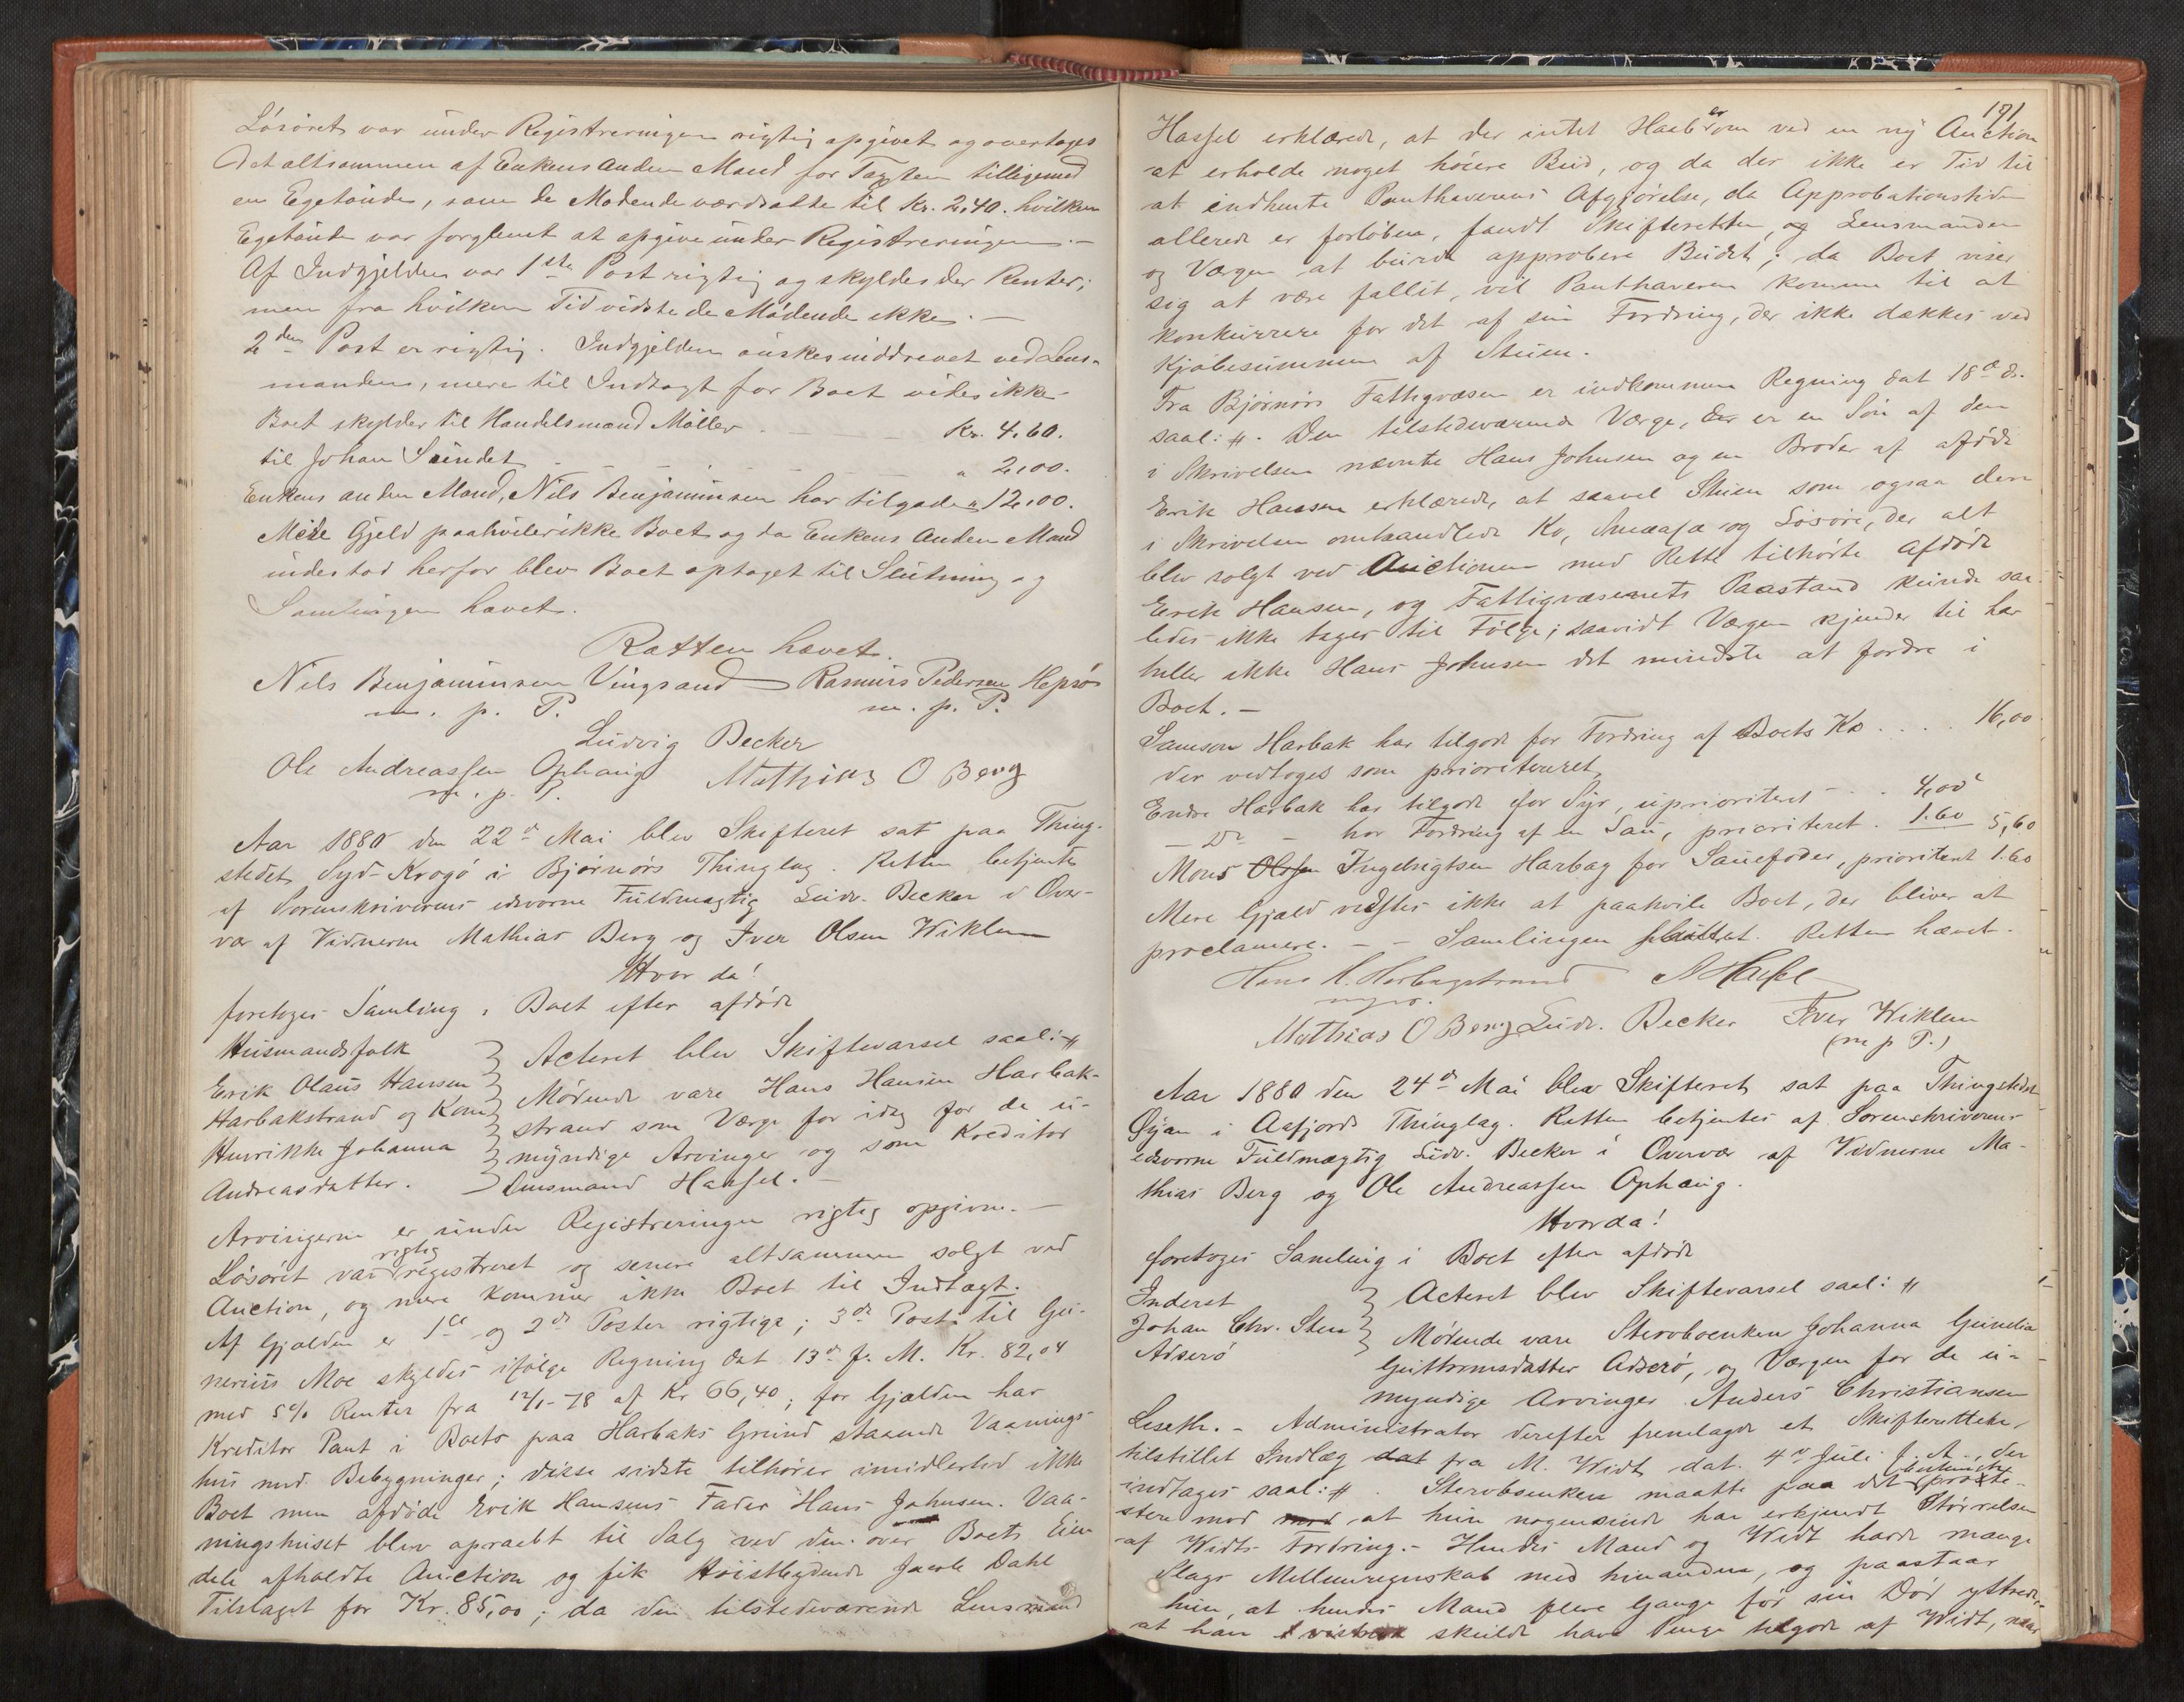 Løsøret var under Registreringen rigtig opgivet og overtages
det altsammen af Enkens anden Mand for Taxten tilligemed
en Egetønde, som de Mødende værdsatte til Kr. 2,40. hvilken
Egetønde var forglemt at opgive under Registreringen. –
Af Indgjelden var 1ste Post rigtig og skyldes der Renter;
men fra hvilken Tid vidste de Mødende ikke. –
2den Post er rigtig. Indgjelden ønskes inddrevet ved Lens-
manden, mere til Indtægt for Boet vides ikke –
Boet skylder til Handelsmand Møller . – – – Kr. 4.60.
til Johan Sundet – – – – – " 2,00.
Enkens anden Mand, Nils Benjaminsen har tilgode " 12,00.
Mere Gjeld paahviler ikke Boet og da Enkens anden Mand
indestod herfor blev Boet optaget til Slutning og
Samlingen hævet.
Retten hævet.
Nils Benjaminsen Vingsand Rasmus Pedersen Hepsø
m. p. P. m. p. P.
Ludvig Becker
Ole Andreassen Ophaug Mathias O Berg
m. p. P.
Aar 1880 den 22de Mai blev Skifteret sat paa Thing-
stedet Syd-Krogø i Bjørnørs Thinglag. Retten betjentes
af Sorenskriverens edsvorne Fuldmægtig Ludv. Becker i Over-
vær af Vidnerne Mathias Berg og Iver Olsen Wiklem
Hvor da!
foretoges Samling i Boet efter afdøde
Husmandsfolk
Erik Olaus Hansen
Harbakstrand og Kone
Henrikke Johanna
Andreasdatter.
Acteret blev Skiftevarsel saal: #
Mødende vare Hans Hansen Harbak-
strand som Værge for idag for de u-
myndige Arvinger og som Kreditor
Lensmand Hassel. –
Arvingerne er under Registreringen rigtig opgivne. –
Løsøret var rigtig registreret og senere altsammen solgt ved
Auction, og mere kommer ikke Boet til Indtægt.
Af Gjælden er 1ste og 2de Poster rigtige; 3de Post til Gu-
nerius Moe skyldes ifølge Regning dat 13de f. M. Kr. 82,04
med 5% Renter fra 12/1-78 af Kr 66,40; for Gjælden har
Kreditor Pant i Boets paa Harbaks Grund staaende Vaanings-
hus med Bebygninger; disse sidste tilhører imidlertid ikke
Boet men afdøde Erik Hansens Fader Hans Johnsen. Vaa-
ningshuset blev opraabt til Salg ved den over Boets Eien-
dele afholdte Auction og fik Høistbydende Jacob Dahl
Tilslaget for Kr. 85,00; da den tilstedeværende Lensmand
171
Hassel erklærede, at der intet Haab er om ved en ny Auction
at erholde noget høiere Bud, og da der ikke er Tid til
at indhente Panthaverens Afgjørelse, da Approbationstiden
allerede er forløben, fandt Skifteretten, og Lensmanden
og Værgen at burde approbere Budet; da Boet viser
sig at være fallit, vil Panthaveren komme til at
konkurrere for det af sin Fordring, der ikke dækkes ved
Kjøbesummen af Stuen.
Fra Bjørnørs Fattigvæsen er indkommen Regning dat 18de ds.
saal: #. Den tilstedeværende Værge, der er en Søn af den
i Skrivelsen nævnte Hans Johnsen og en Broder af afdøde
Erik Hansen erklærede, at saavel Stuen som ogsaa den
i Skrivelsen omhandlede Ko, Smaafæ og Løsøre, der alt
blev solgt ved Auctionen med Rette tilhørte afdøde
Erik Hansen, og Fattigvæsenets Paastand kunde saa-
ledes ikke tages til Følge; saavidt Værgen kjender til har
heller ikke Hans Johnsen det mindste at fordre i
Boet. –
Samson Harbak har tilgode for Fordring af Boets Ko . . . . 16,00
der vedtoges som prioriteret,
Endre Harbak har tilgode for Syr, uprioriteret – . . 4,00
– Do – for Fordring af en Sau, prioriteret . 1.60 5,60
Mons Olsen Ingebrigtsen Harbag for Sauefoder, prioriteret 1.60
Mere Gjæld vidstes ikke at paahvile Boet, der bliver at
proclamere. – – Samlingen sluttet. Retten hævet.
Hans H. Harbagstrand AHassel
mpr.
Mathias O Berg Ludv. Becker Iver Wiklem
(m p P.)
Aar 1880 den 24de Mai blev Skifteret sat paa Thingstedet
Øyan i Aafjords Thinglag. Retten betjentes af Sorenskriverens
edsvorne Fuldmægtig Ludv. Becker i Overvær af Vidnerne Ma-
thias Berg og Ole Andreassen Ophaug.
Hvorda!
foretoges Samling i Boet efter afdøde
Inderst
Johan Chr. Sten
Adserø
Acteret blev Skiftevarsel saal: #
Mødende vare Stervboenken Johanna Gurelia
Guttormsdatter Adserø, og Værgen for de u-
myndige Arvinger Anders Christiansen
Leseth. – Administrator derefter fremlagde et Skifteretten
tilstillet Indlæg dat fra M. Widt dat. 4de Juli f. A., der
indtages saal: #. Stervboenken maatte paa det bestemteste prote-
stere mod med at hun nogensinde har erkjendt Størrelsen
af Widts Fordring. – Hendes Mand og Widt havde mange
Slags Mellemregnskab med hinanden, og paastaar
hun, at hendes Mand flere Gange før sin Død yttrede,
at han skulde have Penge tilgode af Widt, naar